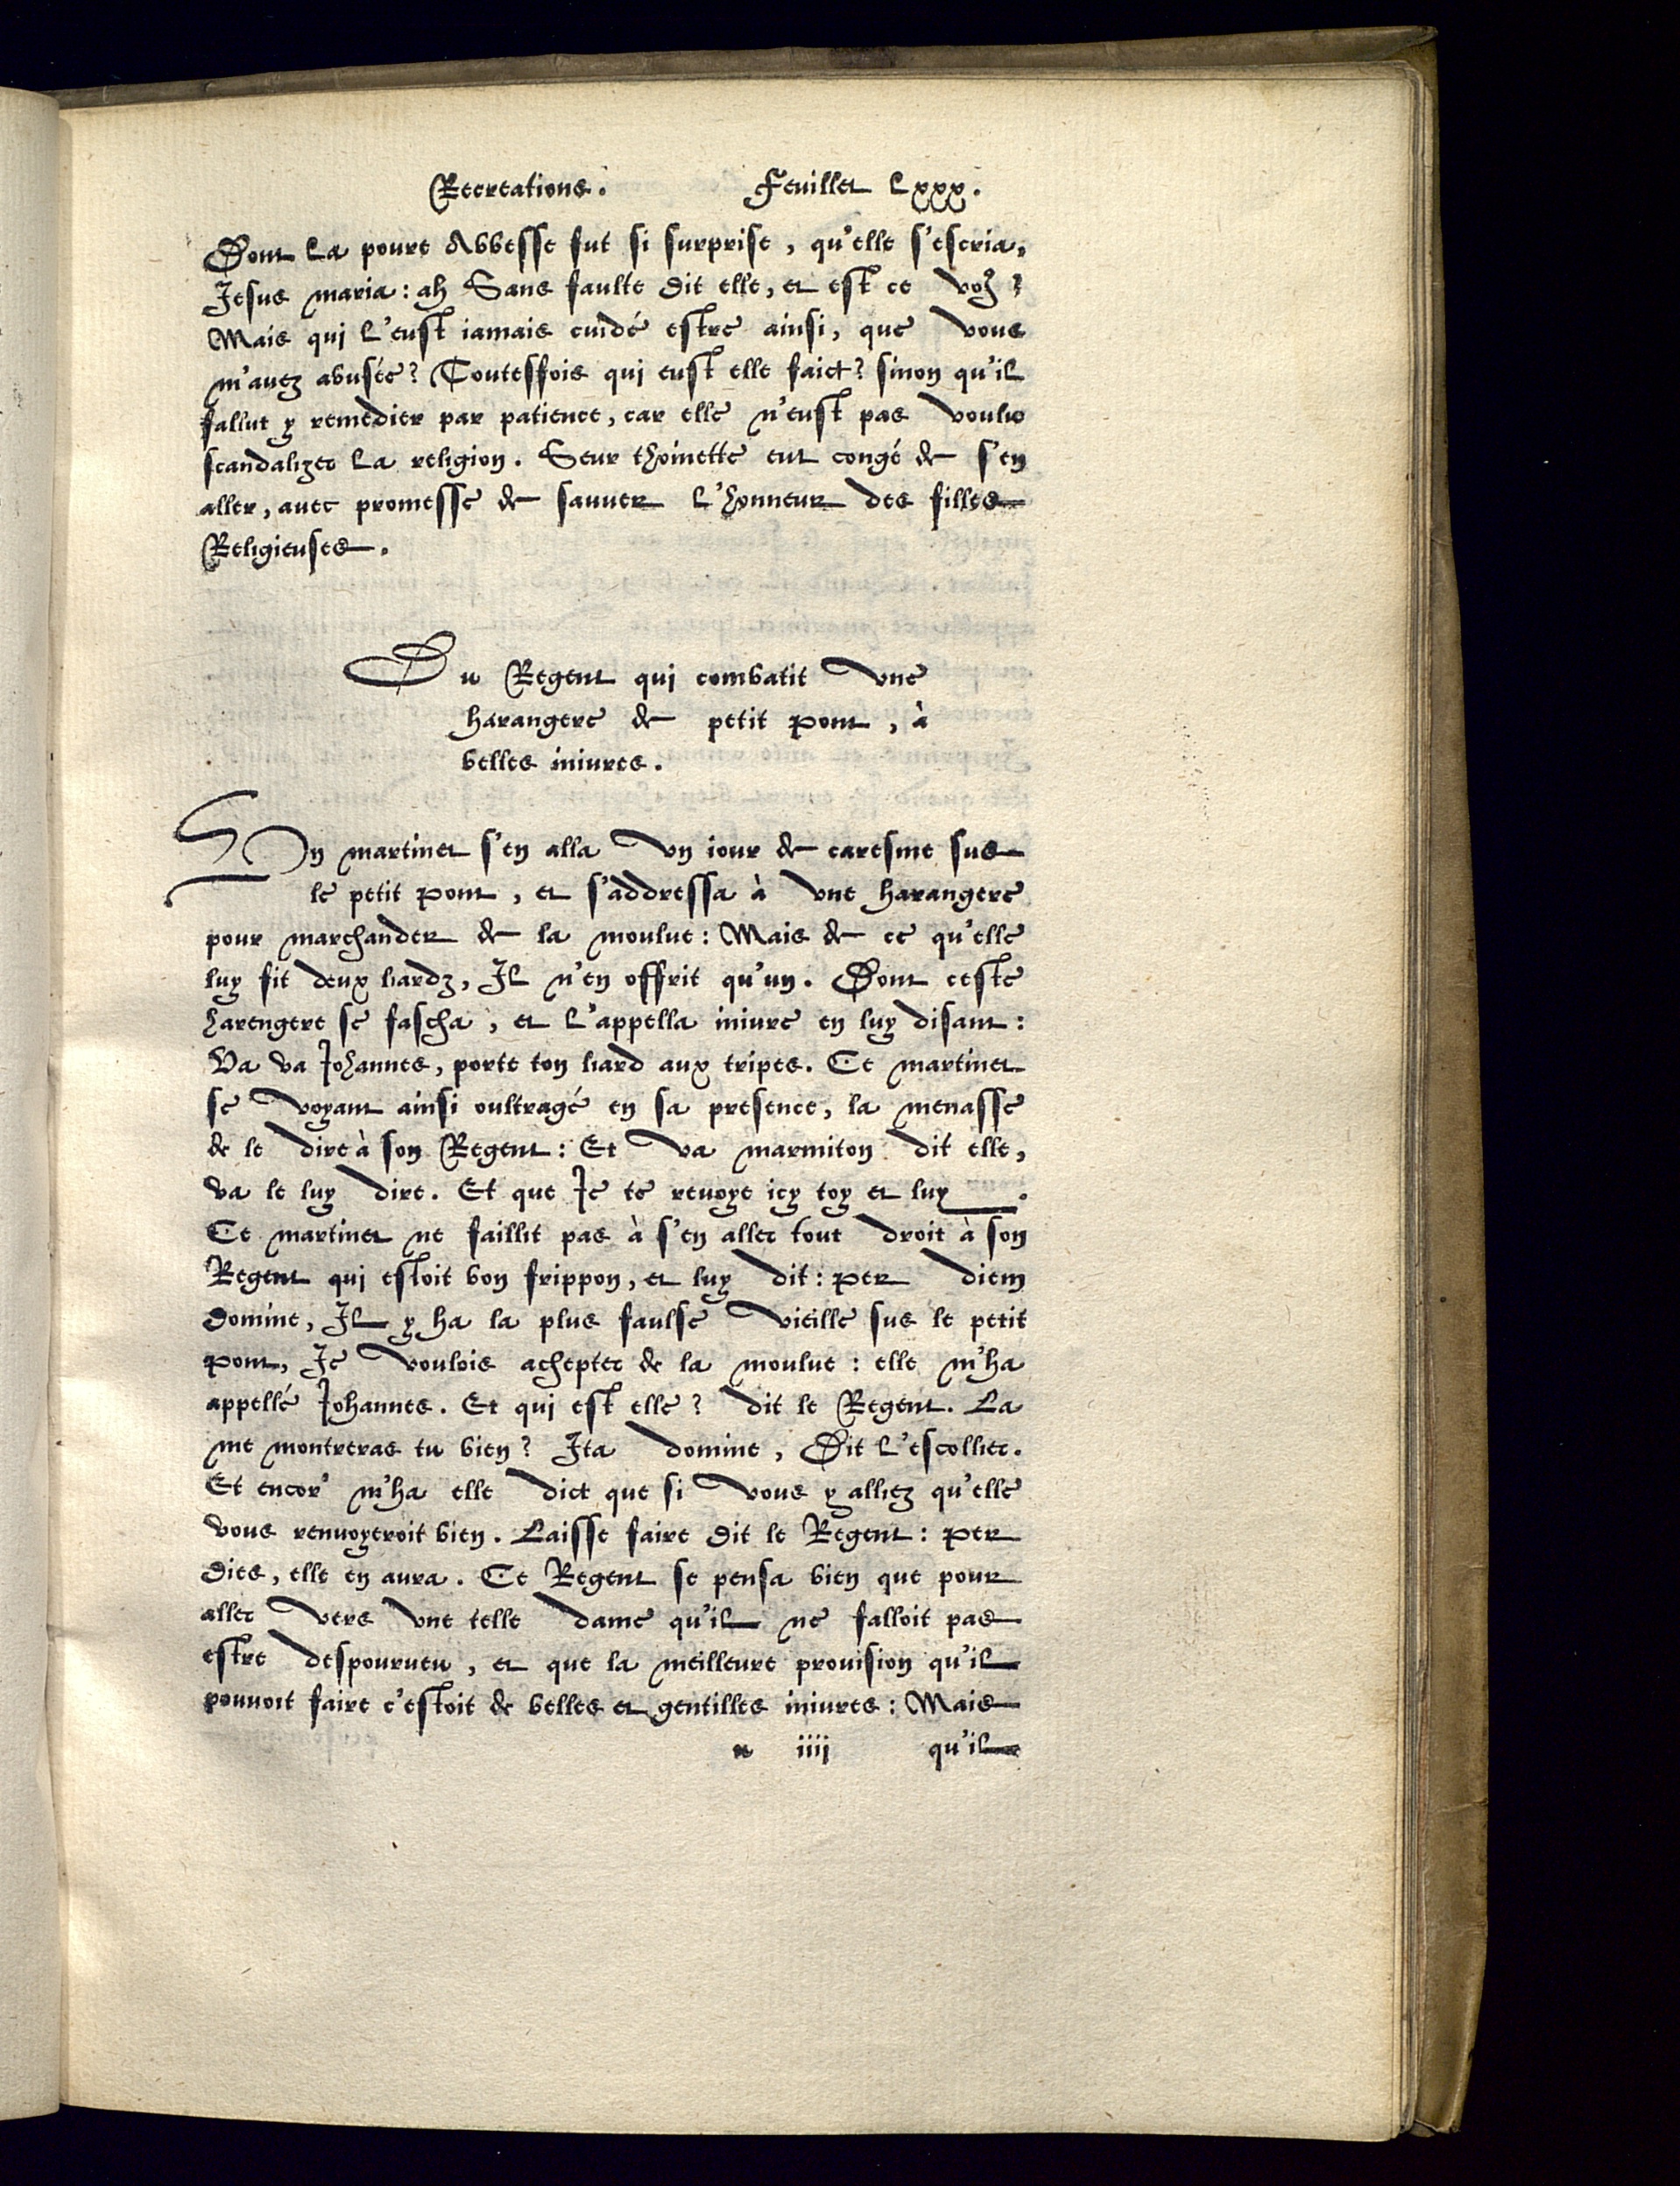 Recreations. Feuillet Lxxx.
Dont la poure Abbesse fut si surprise, qu'elle s'escria,
Jesus maria: ah Sans faulte dit elle, et est ce voꝰ?
Mais qui l'eust iamais cuidé estre ainsi, que vous
m'auez abusée? Toutesfois qui eust elle faict? sinon qu'il
fallut y remedier par patience, car elle n'eust pas voulu
scandalizer la religion. Seur thoinette eut congé de s'en
aller, auec promesse de sauuer l'honneur des filles
Religieuses.
Du Regent qui combatit vne
harangere de petit pont, à
belles iniures.
Vn martinet s'en alla vn iour de caresme sus
le petit pont, et s'addressa à vne harangere
pour marchander de la moulue: Mais de ce qu'elle
luy fit deux liardz, Il n'en offrit qu'un. Dont ceste
harengere se fascha, et l'appella iniure en luy disant:
Va va Johannes, porte ton liard aux tripes. Ce martinet
se voyant ainsi oultragé en sa presence, la menasse
de le dire à son Regent: Et va marmiton dit elle,
va le luy dire. Et que Je te reuoye icy toy et luy.
Ce martinet ne faillit pas à s'en aller tout droit à son
Regent qui estoit bon frippon, et luy dit: per diem
domine, Il y ha la plus faulse vieille sus le petit
pont, Je voulois achepter de la moulue: elle m'ha
appellé Johannes. Et qui est elle? dit le Regent. La
me montreras tu bien? Ita domine, Dit l'escollier.
Et encor' m'ha elle dict que si vous y alliez qu'elle
vous renuoyeroit bien. Laisse faire dit le Regent: per
dies, elle en aura. Ce Regent se pensa bien que pour
aller vers vne telle dame qu'il ne falloit pas
estre despourueu, et que la meilleure prouision qu'il
pouuoit faire c'estoit de belles et gentilles iniures: Mais
u iiij qu'il